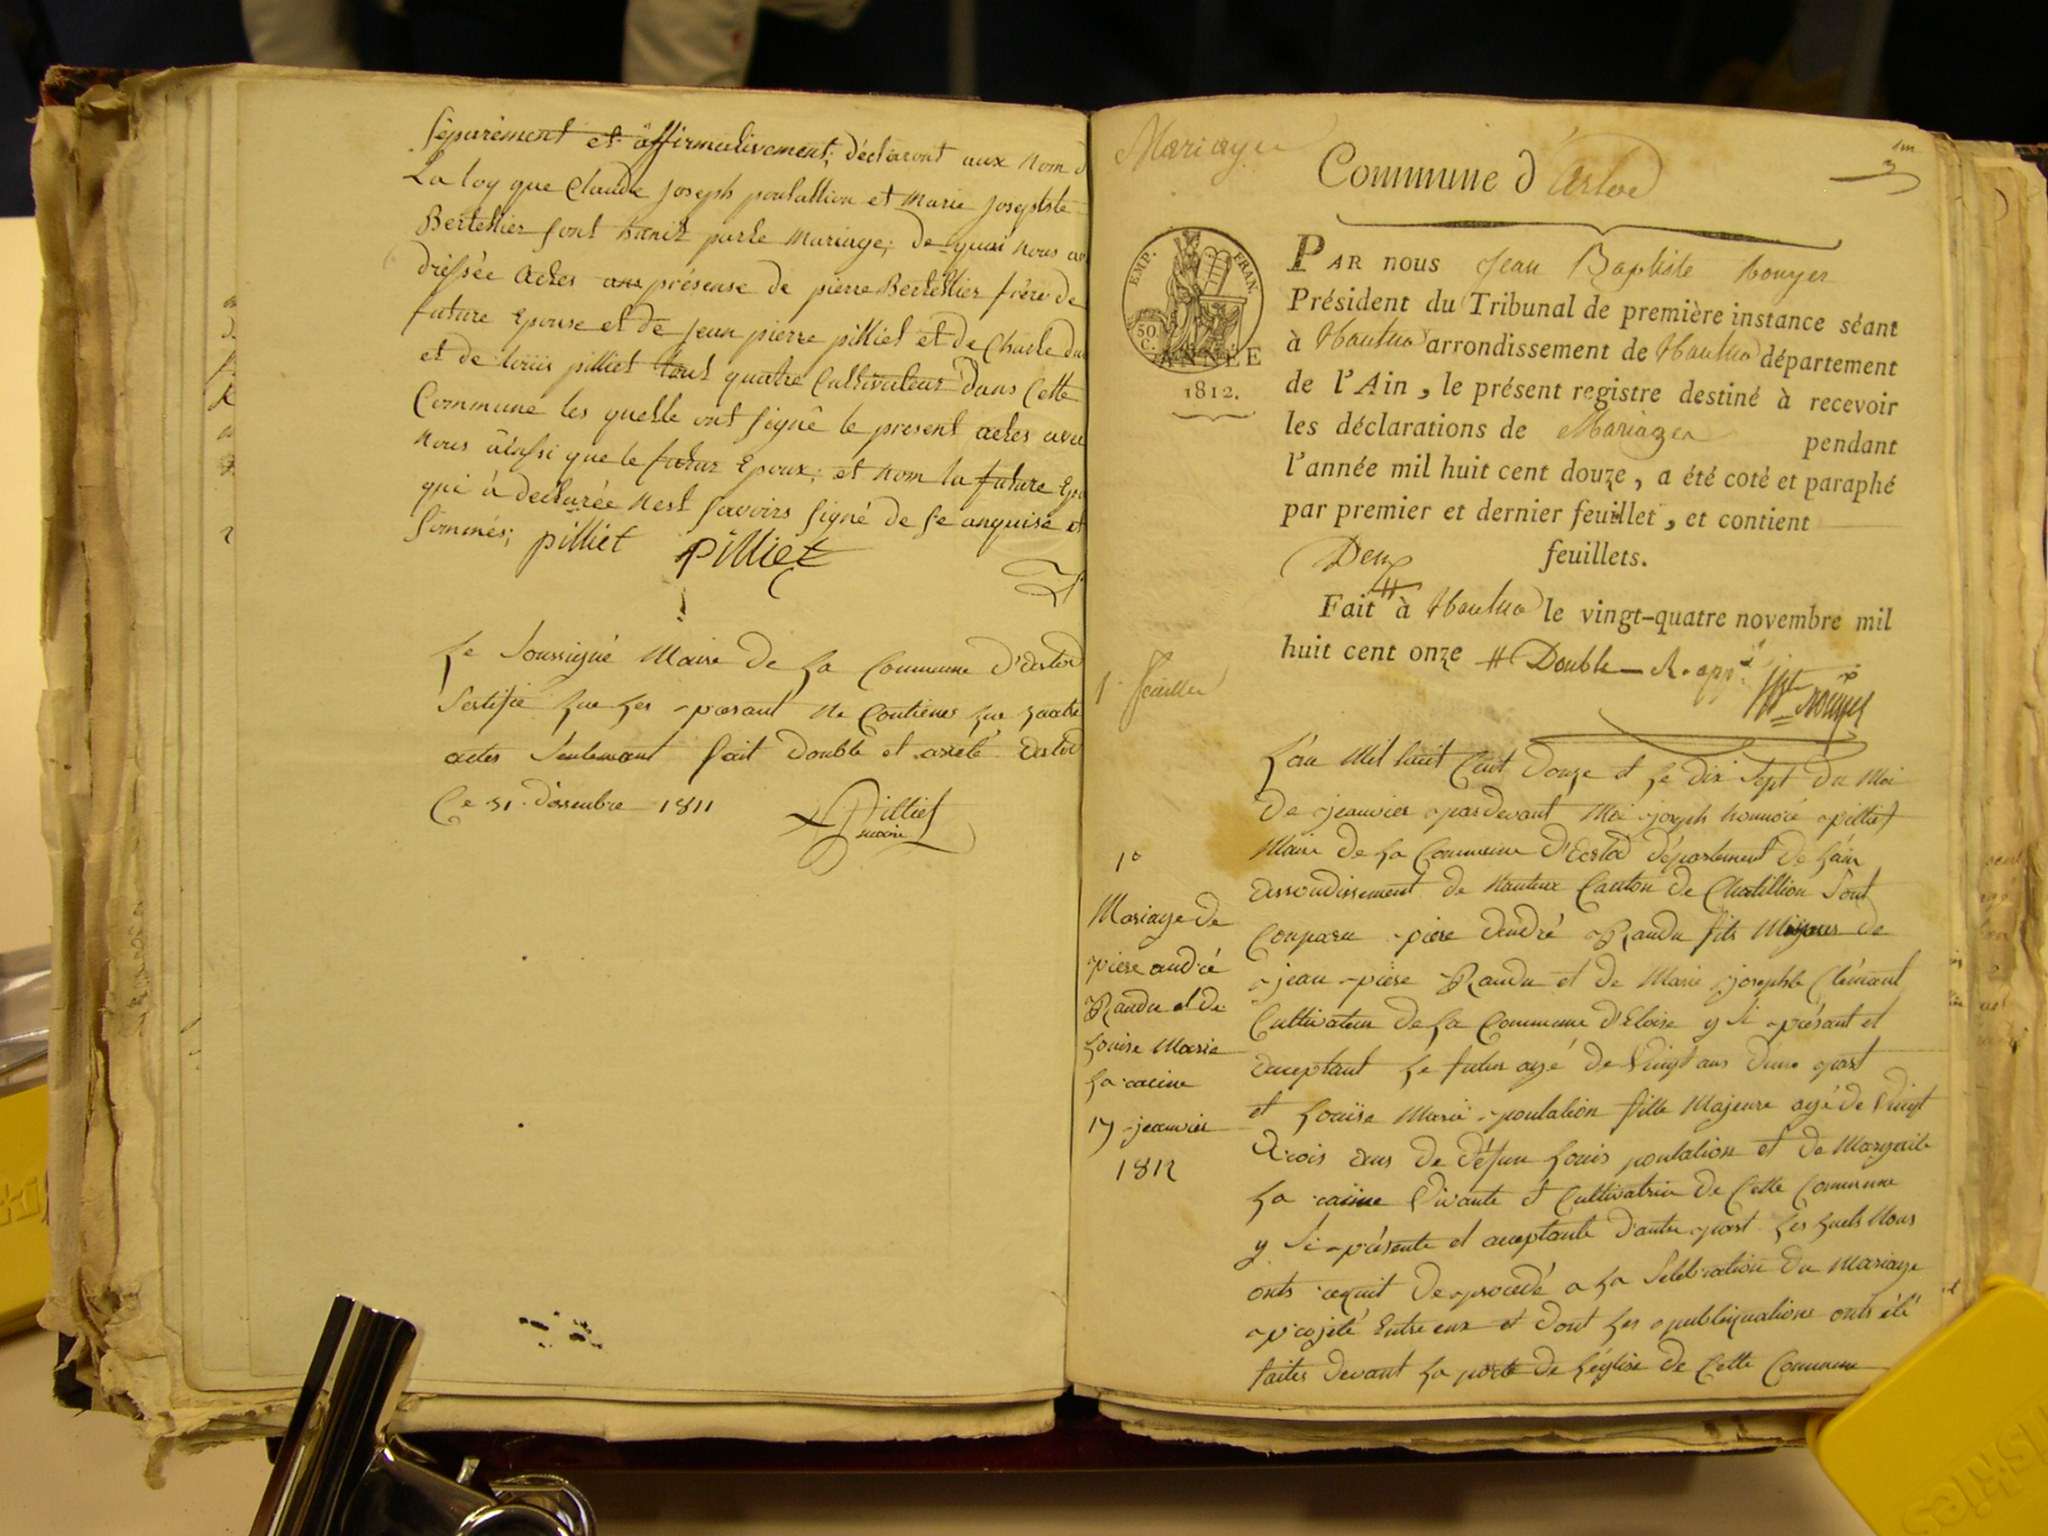 séparément et affirmativement, déclaront aux nom d
La loy que Claude Joseph poulallion et Marie Josephte
Bertellier sont hunit par le Mariage; de quoi nous av
dressée actes présense de pierre Bertellier frère de
future Epouse et de jean pierre pilliet et de Charle du
et de louis pilliet tout quatre Cultivateur Dans Cette
Commune les quelle ont signé le present actes avec
nous äinssi que le futur Epoux; et nom la future Epo
qui à declarée nest savoirs signé de se anquise et
sommés; pilliet pilliet
Le Soussigné Maire De La Commune D'arlod
Sertifie que Les presant ne Contiene que quatre
actes Seulement fait double et areté arlod
Ce 31 Dessembre 1811 Pilliet
maire
Mariage
Commune d'Arlod
1er
EMP. FRAN.
50
C.
ANNÉE
1812.
PAR nous Jean Baptiste Rouyer
Président du Tribunal de première instance séant
à Nantua arrondissement de Nantua département
de l'Ain, le présent registre destiné à recevoir
les déclarations de Mariages pendant
l'année mil huit cent douze, a été coté et paraphé
par premier et dernier feuillet, et contient
Deux feuillets.
Fait # à Nantua le vingt-quatre novembre mil
huit cent onze # Double
1r feuillet
L'an Mil huit Cent Douze et Le dix Sept Du Moi
De jeanvier pardevant Moi joseph honnoré pilliet
Maire De La Commune D'Erlod Département De L'ain
arrondissement De Nantua Canton de Chatillion Sont
Conparu piere Andre Randu fils Majeur de
jean piere Randu et de Marie josephte Clémant
Cultivateur De La Commune D'Eloise y Si présant et
acceptant Le futur agé De Vingt ans D'une part
et Louise Marie poulalion fille Majeure agé De Vingt
trois ans De Défun Louis poulalion et De Margarite
La racine Vivante et Cultivatrice De Cette Commune
y Si présente et acceptante D'autre part Les quels Nous
onts requit De procedé a La Selebration Du Mariage
projeté Entre eux et Dont Les publiquations onts été
faites Devant La porte De L'église De Cette Commune
1°
Mariage De
piere andré
Randu et De
Louise Marie
La racine
17 jeanvier
1812